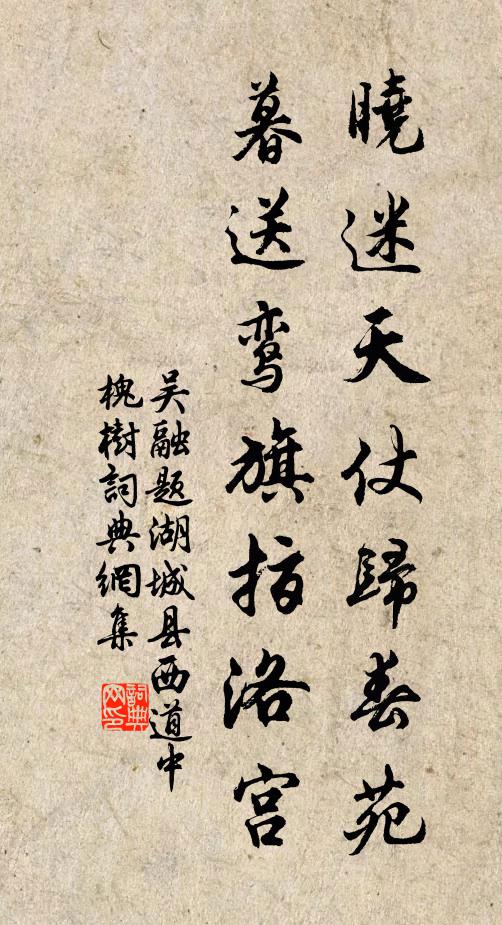 曉迷天仗歸春苑
暮送鸾旗指洛宫
吴融题湖城县西道中
槐樹詞典網集
詞典网印